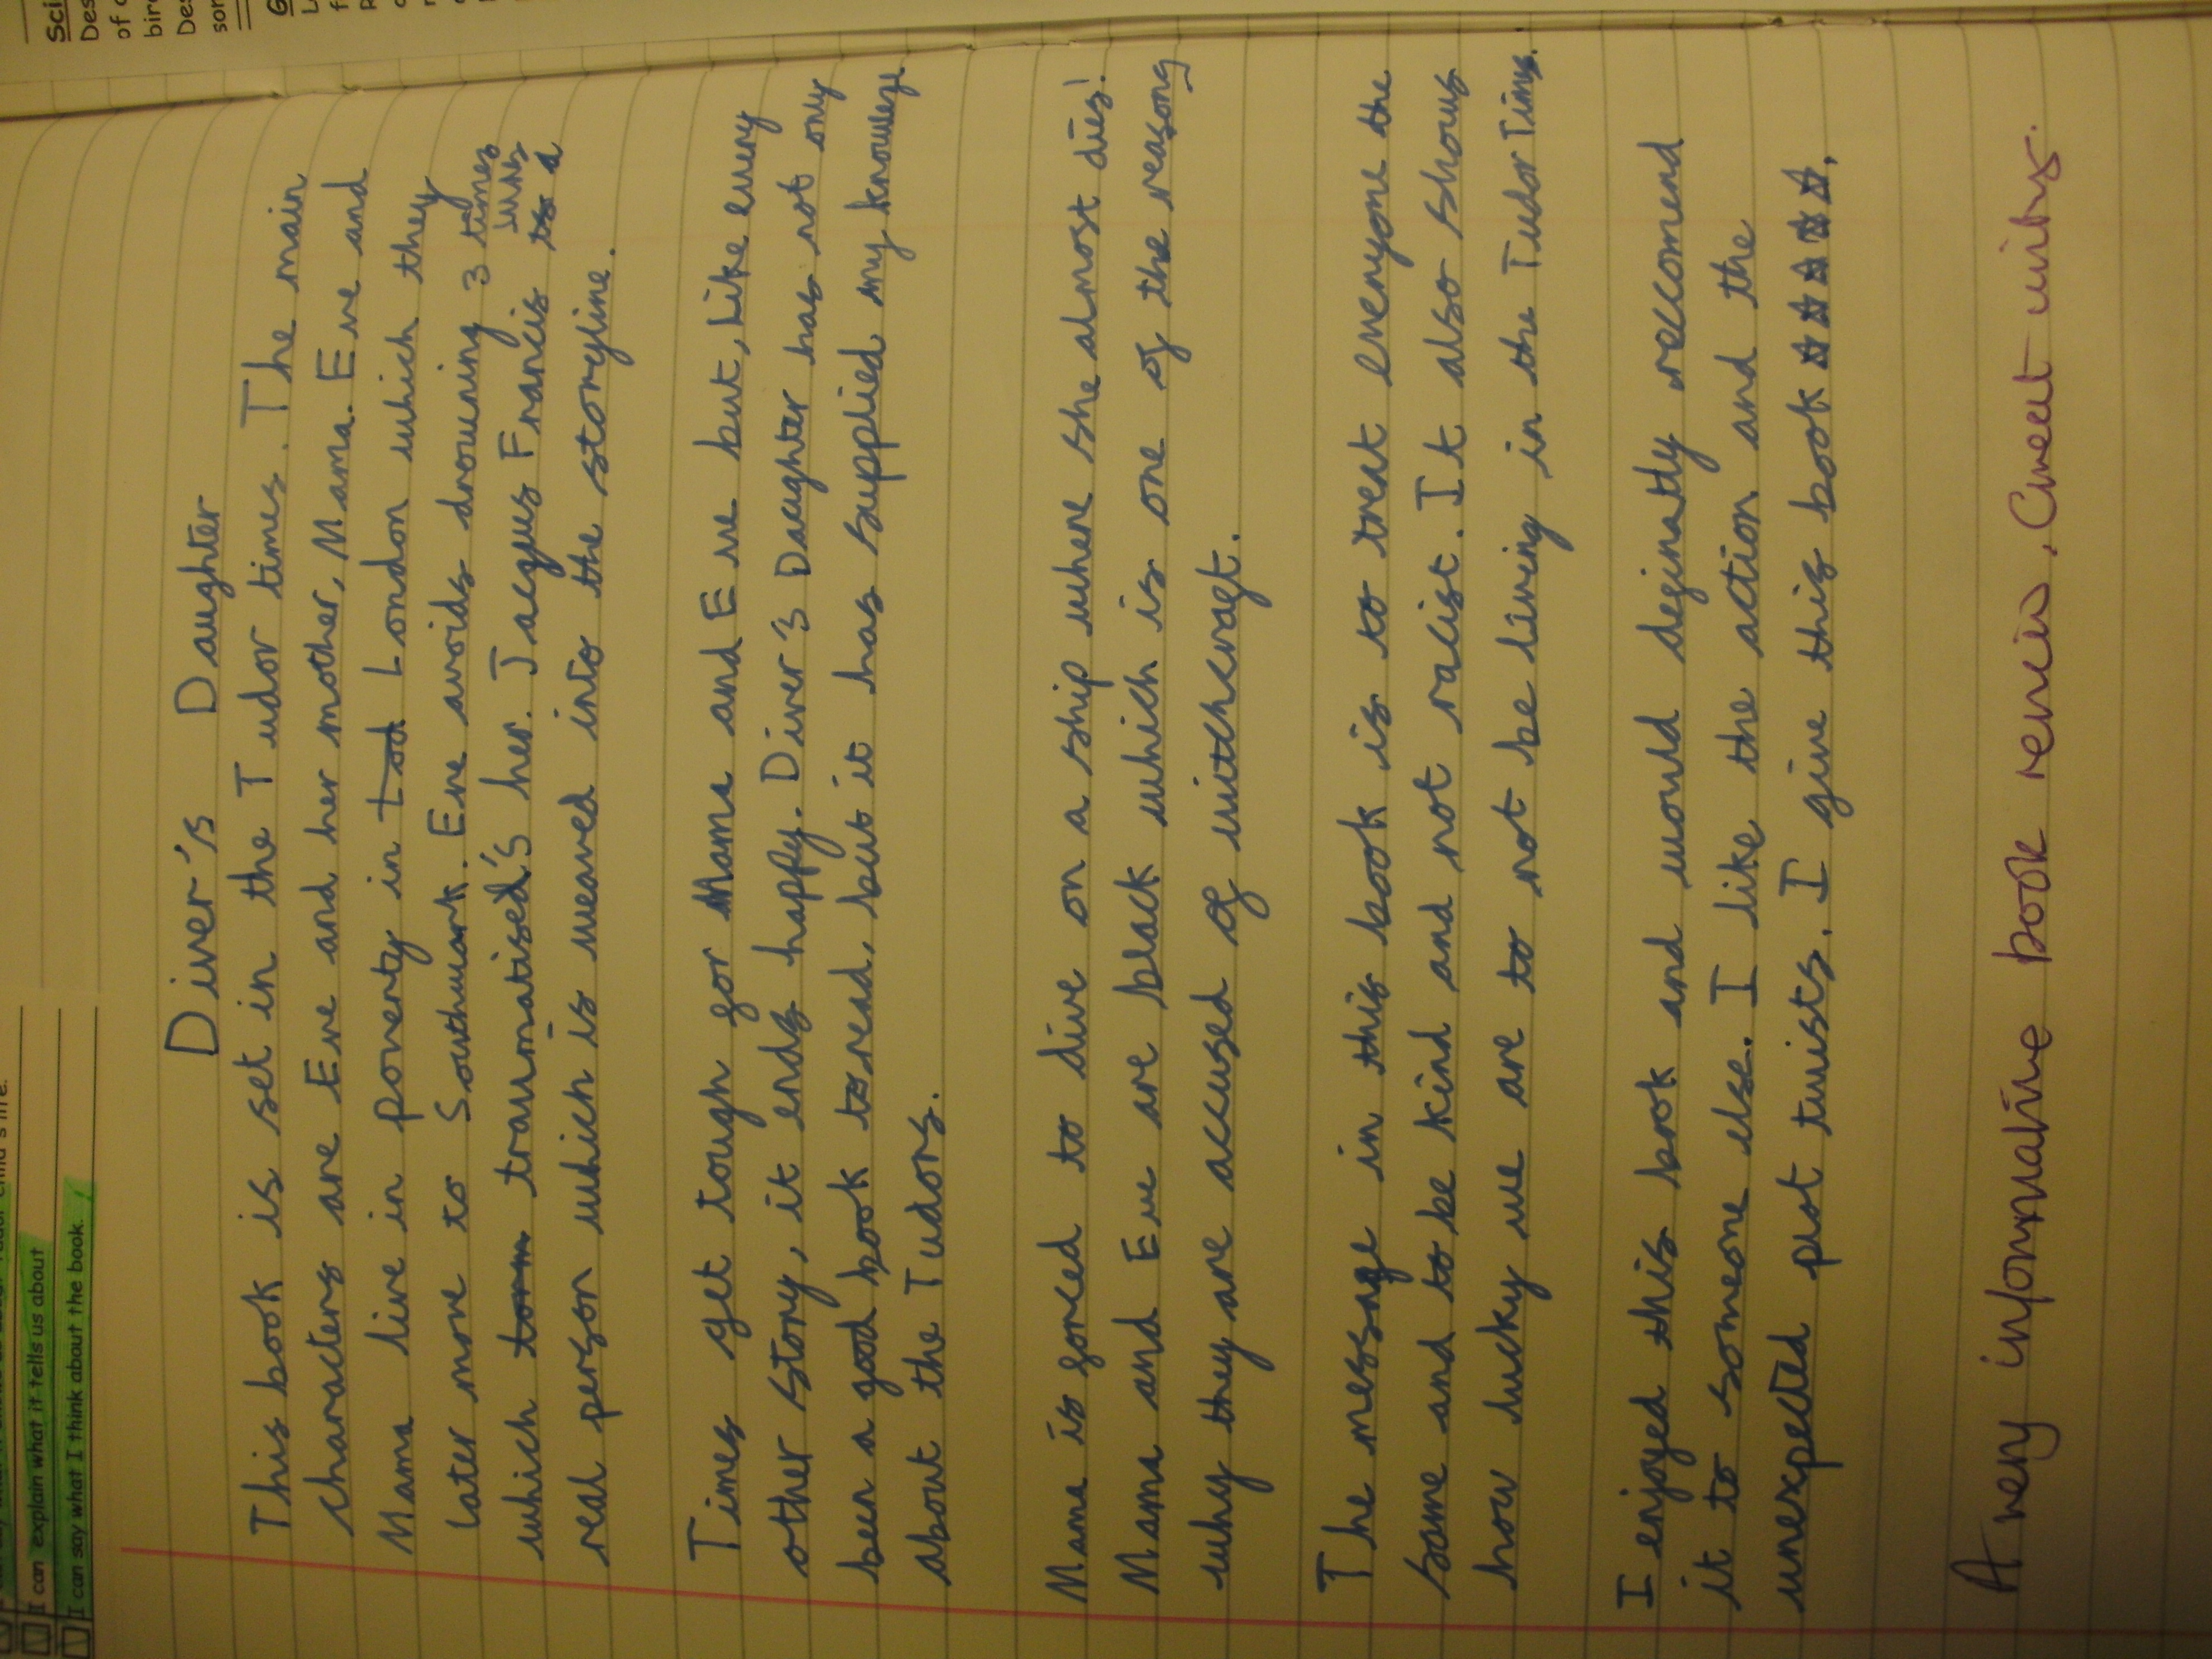 Sci
Des
of
bir
Des
so
G
I can explain what it tells us about
I can say what I think about the book.
Diver's Daughter
This book is set in the Tudor times. The main
characters are Eve and her mother, Mama. Eve and
Mama live in poverty in London which they
later move to Southwark. Eve avoids drowning 3 times
which traumatised's her. Jacques Francis is a
real person which is weaved into the storyline.
Times get tough for Mama and Eve but, like every
other story, it ends happy. Diver's Daughter has not only
been a good book to read, but it has supplied my knowlege
about the Tudors.
Mama is forced to dive on a ship where she almost dies!
Mama and Eve are black which is one of the reason
why they are accused of witchcraft.
The message in this book is to treat everyone the
same and to be kind and not racist. It also shows
how lucky we are to not be living in the Tudor Times.
I enjoyed this book and would definatly reccomend
it to someone else. I like the action and the
unexpected plot twists. I give this book ☆☆☆☆☆.
A very informative book review.